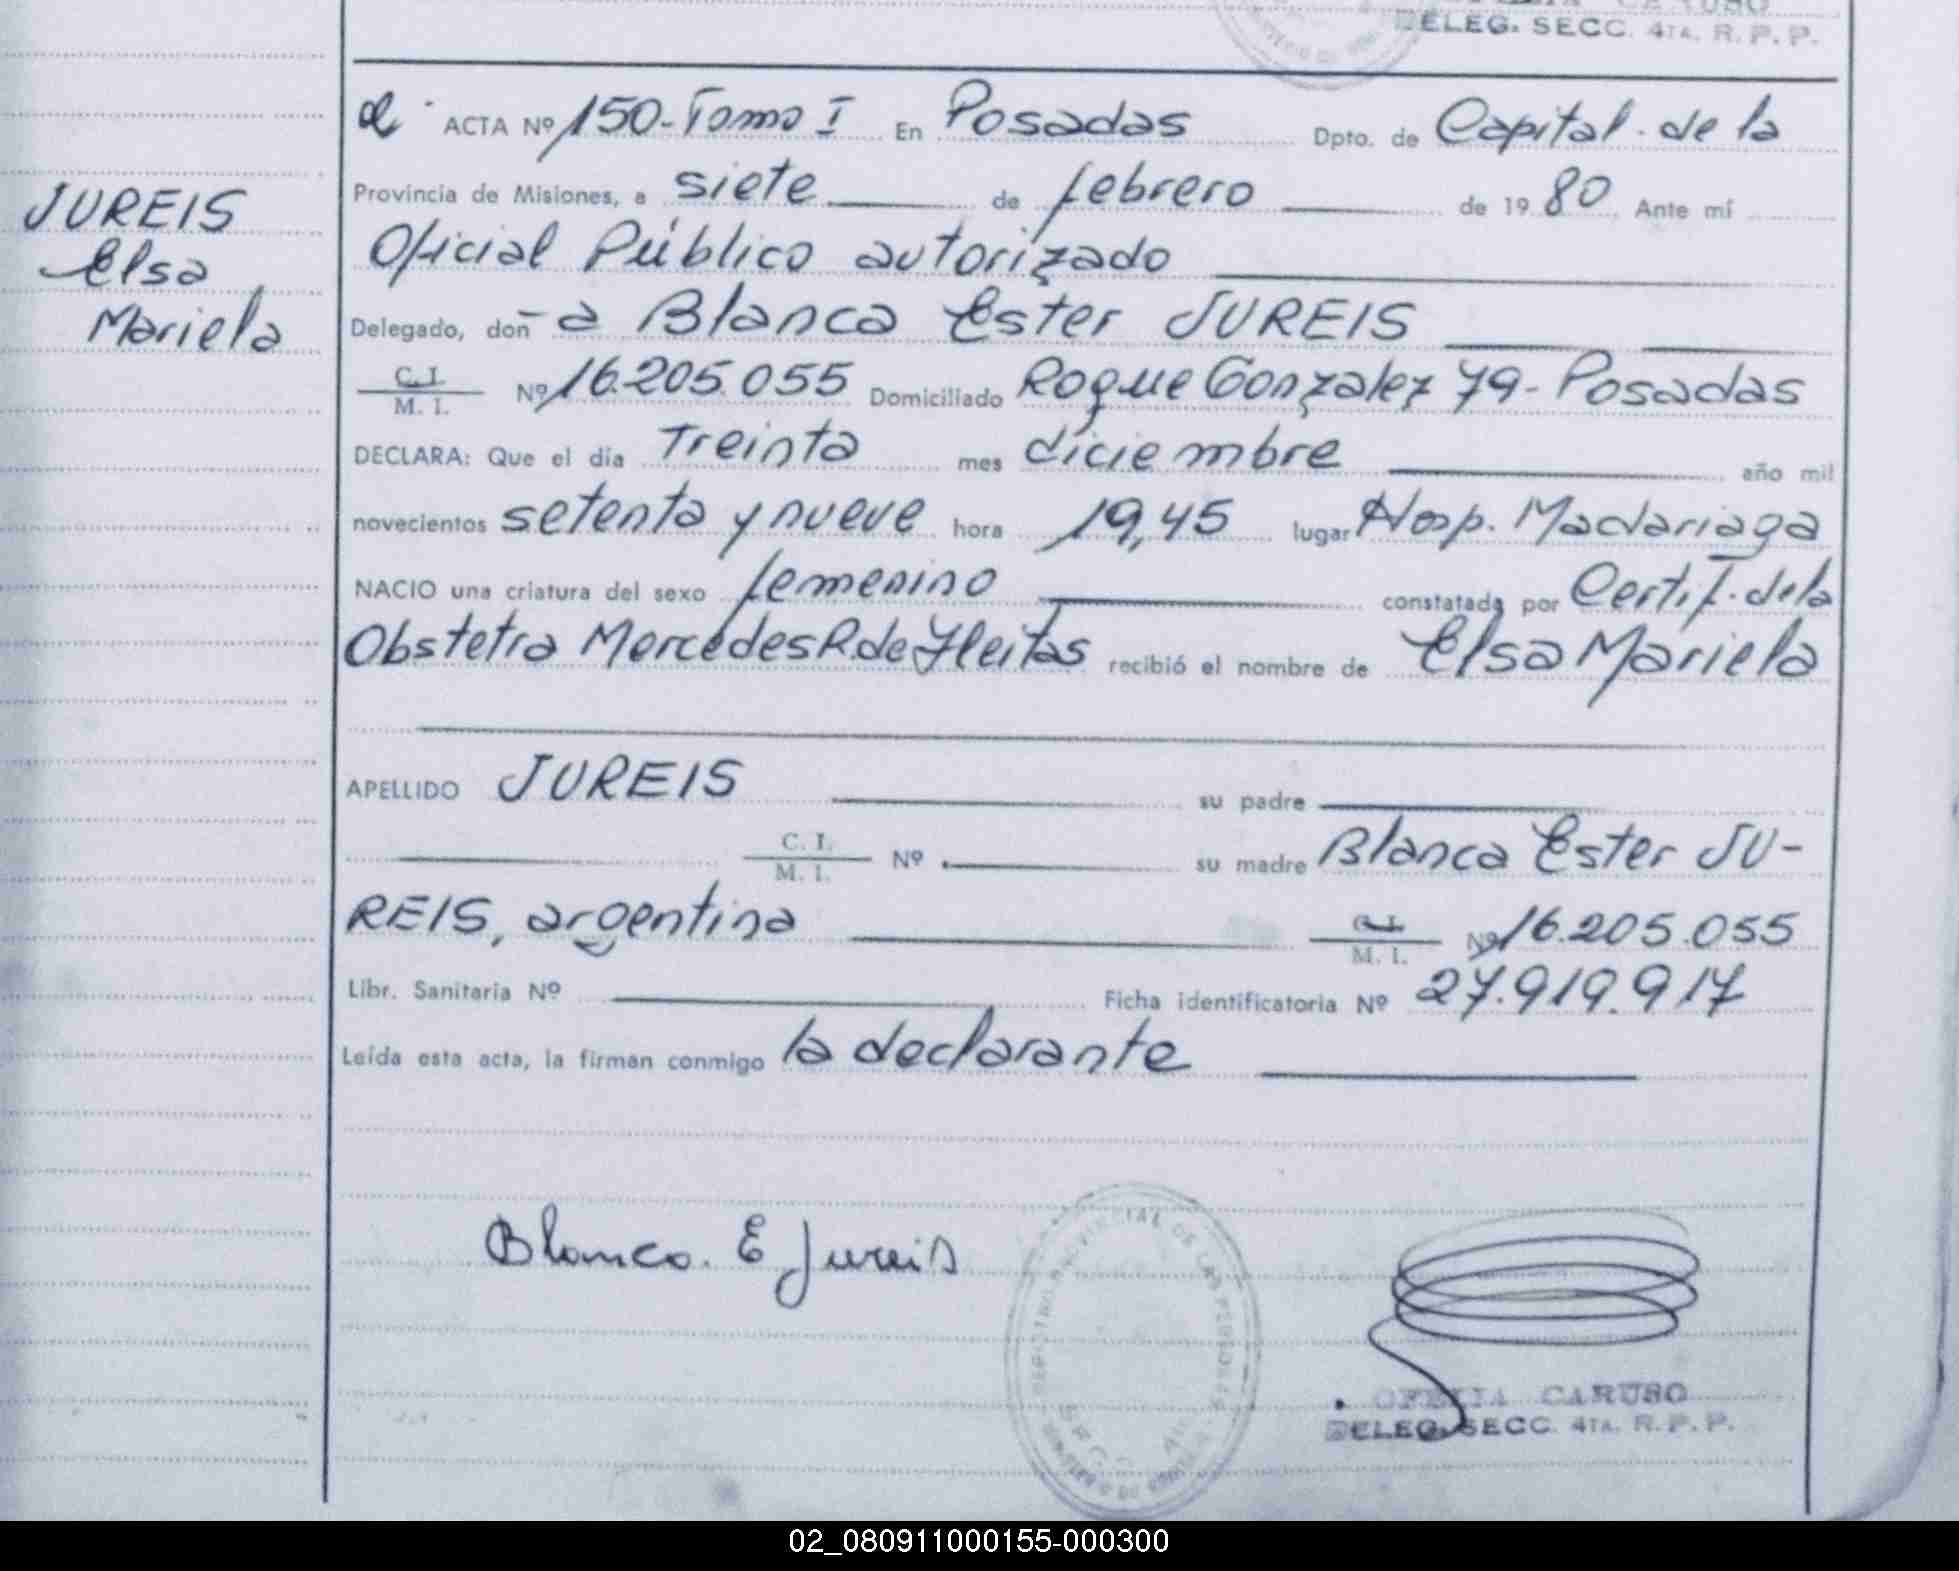 DELEG. SECC. 4TA. R. P. P.
ACTA Nº 150-Tomo I En Posadas Dpto. de Capital. de la
Provincia de Misiones, a siete de febrero de 1980 Ante mí
Oficial Público autorizado
Delegado, don-a Blanca Ester JUREIS
C. I.
M. I.
Nº 16.205.055 Domiciliado Roque Gonzalez 79-Posadas
DECLARA: Que el día Treinta mes diciembre año mil
novecientos setenta y nueve hora 19,45 lugar Hosp. Madariaga
NACIO una criatura del sexo femenino constatada por Certif. de la
Obstetra Mercedes R. de Fleitas recibió el nombre de Elsa Mariela
APELLIDO JUREIS su padre
C. I.
M. I.
Nº su madre Blanca Ester JU-
REIS, argentina C. I.
M. I.
Nº 16.205.055
Libr. Sanitaria Nº Ficha identificatoria Nº 27.919.917
Leída esta acta, la firman conmigo la declarante
JUREIS
Elsa
Mariela
Blanca. E Jureis
REGISTRO PROVINCIAL DE LAS PERSONAS
OFELIA CARUSO
DELEG. SECC. 4TA. R. P. P.
02_080911000155-000300